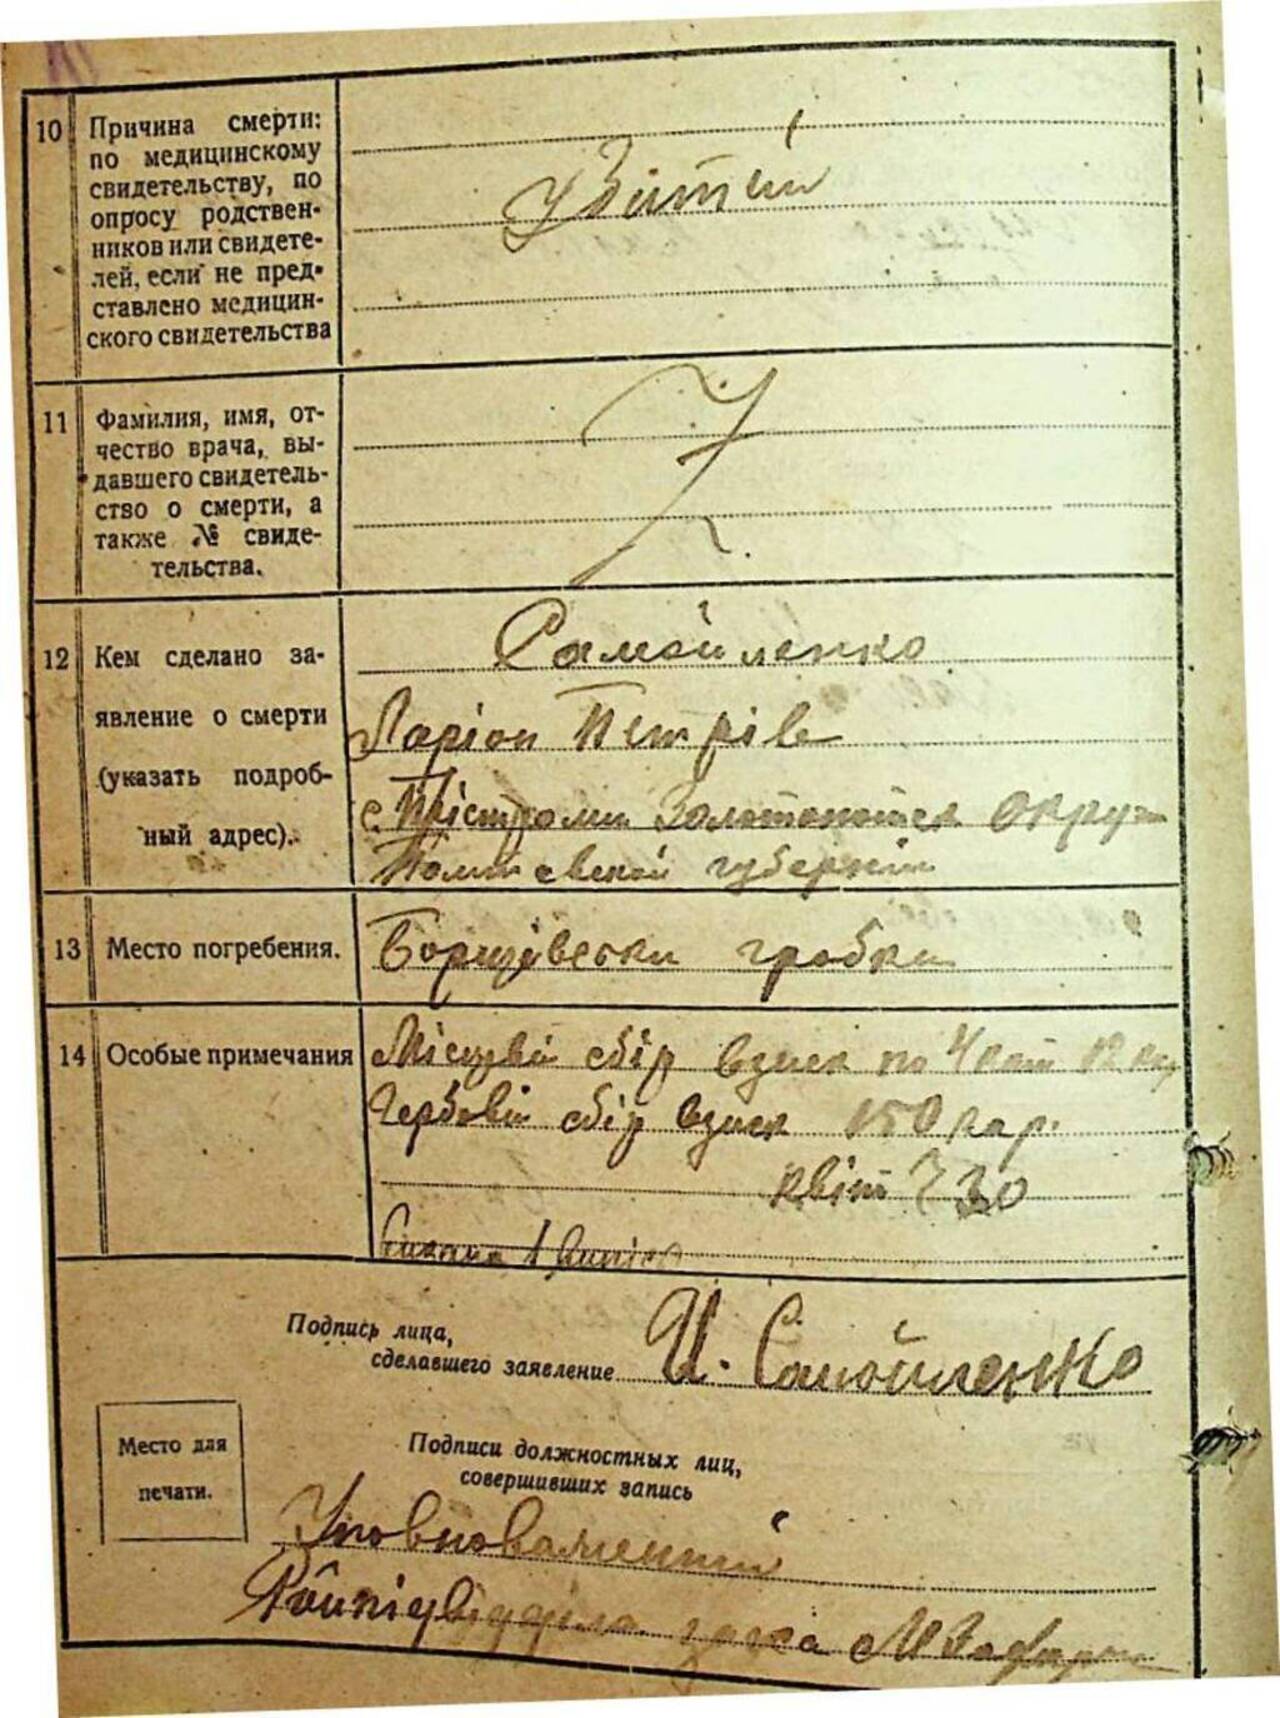 10 Причина смерти:
по медицинскому
свидетельству, по
опросу родствен-
ников или свидете-
лей, если не пред-
ставлено медицин-
ского свидетельства
Убитий
11 Фамилия, имя, от-
чество врача, вы-
давшего свидетель-
ство о смерти, а
также № свиде-
тельства.
12 Кем сделано за-
явление о смерти
(указать подроб-
ный адрес).
Самойленко
Ларіон Петрів
с. Золотоношск округ
Полтавской губерніи
13 Место погребения.
Борщівски гробки
14 Особые примечания
Місцеві сбір взиск по
Гербовій сбір взиск 150 кар.
квіт 730
Подпись лица,
сделавшего заявление И. Самойленко
Место для
печати.
Подписи должностных лиц,
совершивших запись
Уповноважений